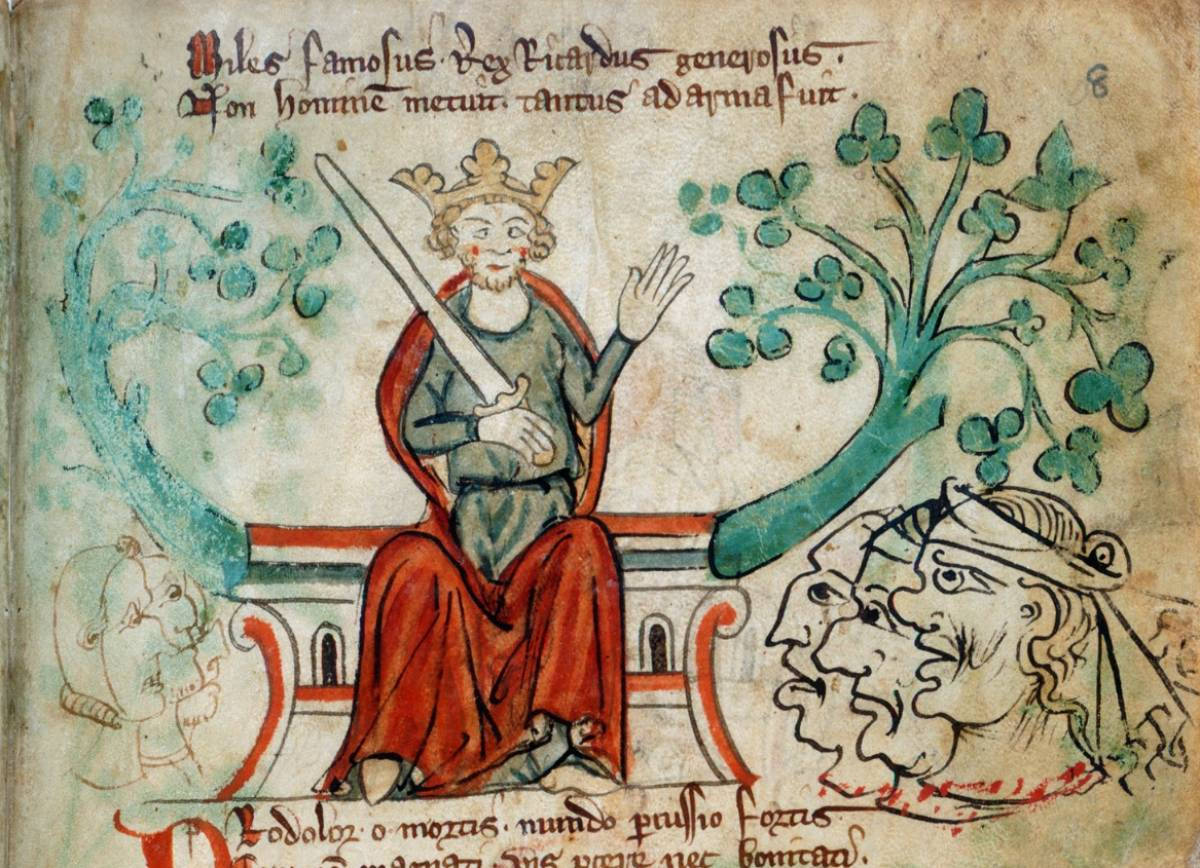 Miles famosus· Rex Ricardus generosus·
Non hominē metuit· tantus ad arma fuit·
8
Prodolor· o mortis· mundo p̄cussio fortis
magnati
nec bonitati·